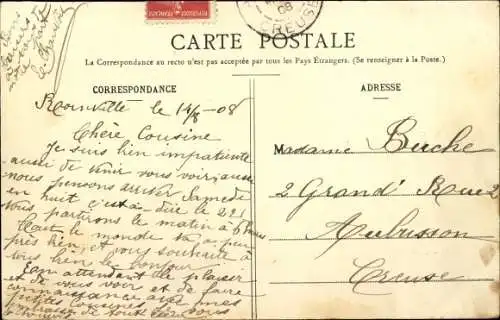 08
CREUSE
CARTE POSTALE
La Correspondance au recto n'est pas acceptée par tous les Pays Étrangers. (Se renseigner à la Poste.)
CORRESPONDANCE
ADRESSE
Roinville le 14/8-08
Chère Cousine
Je suis bien impatiente
aussi de venir vous voir, aussi
nous pensons arriver Samedi
en huit c'est à dire le 22
nous partirons le matin à 6 heures
tout le monde va à peu
près bien, et vous souhaite à
tous bien le bonjour
En attendant le plaisir
de vous voir et de faire
connaissance avec mes
petites Cousines
Madame Buche
2 Grand' Rue 2
Aubusson
Creuse